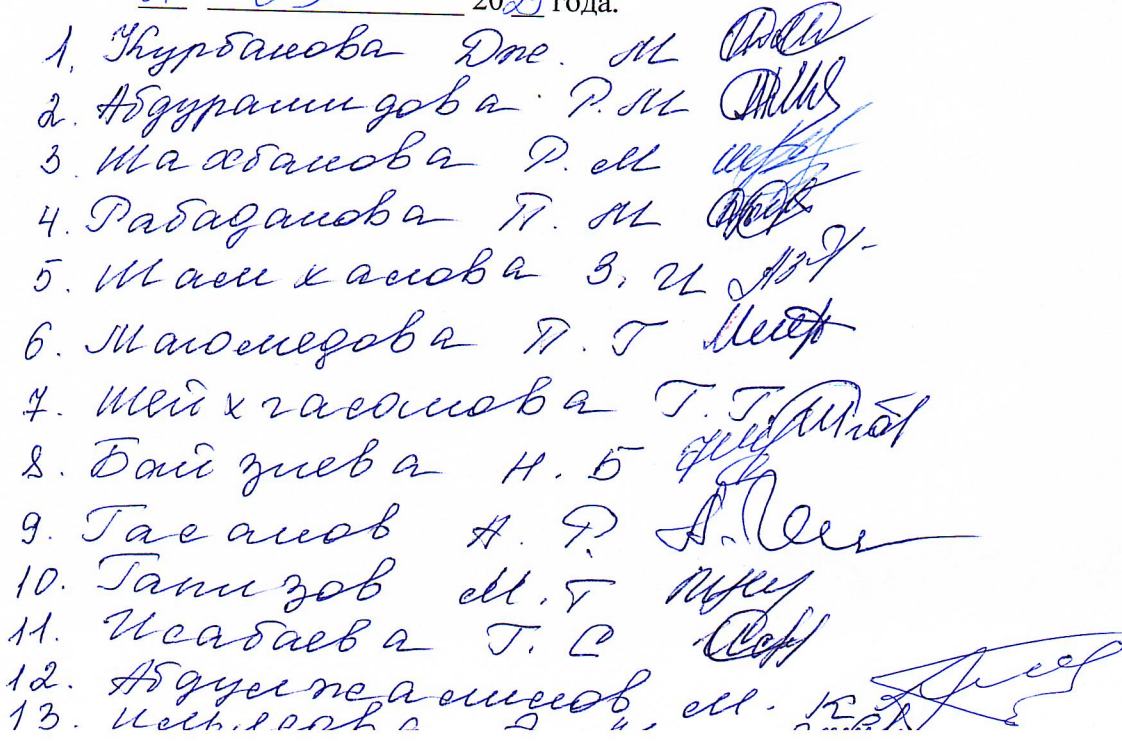 20 года.
1. Курбанова Дже. М
2. Абдурашидова Р. М
3. Шахбанова Р. М
4. Рабаданова П. М
5. Шамхалова З. И
6. Магомедова П. Г
7. Шейхгасанова Г. Г.
8. Байзиева Н. Б
9. Гасанов А. Р.
10. Гапизов М. Г
11. Исабаева Г. С
12. Абдулжалилов М. К
13.